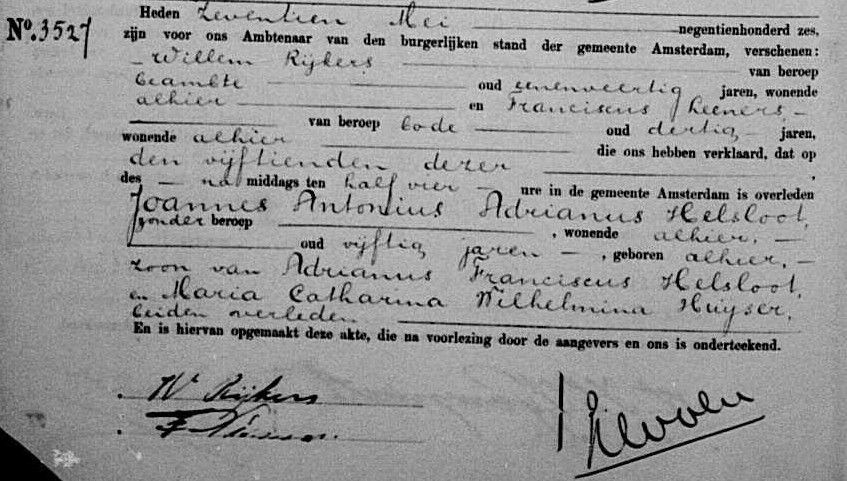 Heden zeventien Mei negentienhonderd zes,
No. 3527 zijn voor ons Ambtenaar van den burgerlijken stand der gemeente Amsterdam, verschenen:
Willem Rijkers van beroep
beambte oud zevenveertig jaren, wonende
alhier en Franciscus Heeners
van beroep bode oud dertig jaren,
wonende alhier die ons hebben verklaard, dat op
den vijftienden dezer
des na middags ten half vier ure in de gemeente Amsterdam is overleden
Joannes Antonius Adrianus Helsloot,
zonder beroep, wonende alhier,
oud vijftig jaren, geboren alhier,
zoon van Adrianus Franciscus Helsloot,
en Maria Catharina Wilhelmina Huyser,
beiden overleden
En is hiervan opgemaakt deze akte, die na voorlezing door de aangevers en ons is onderteekend.
W Rijkers